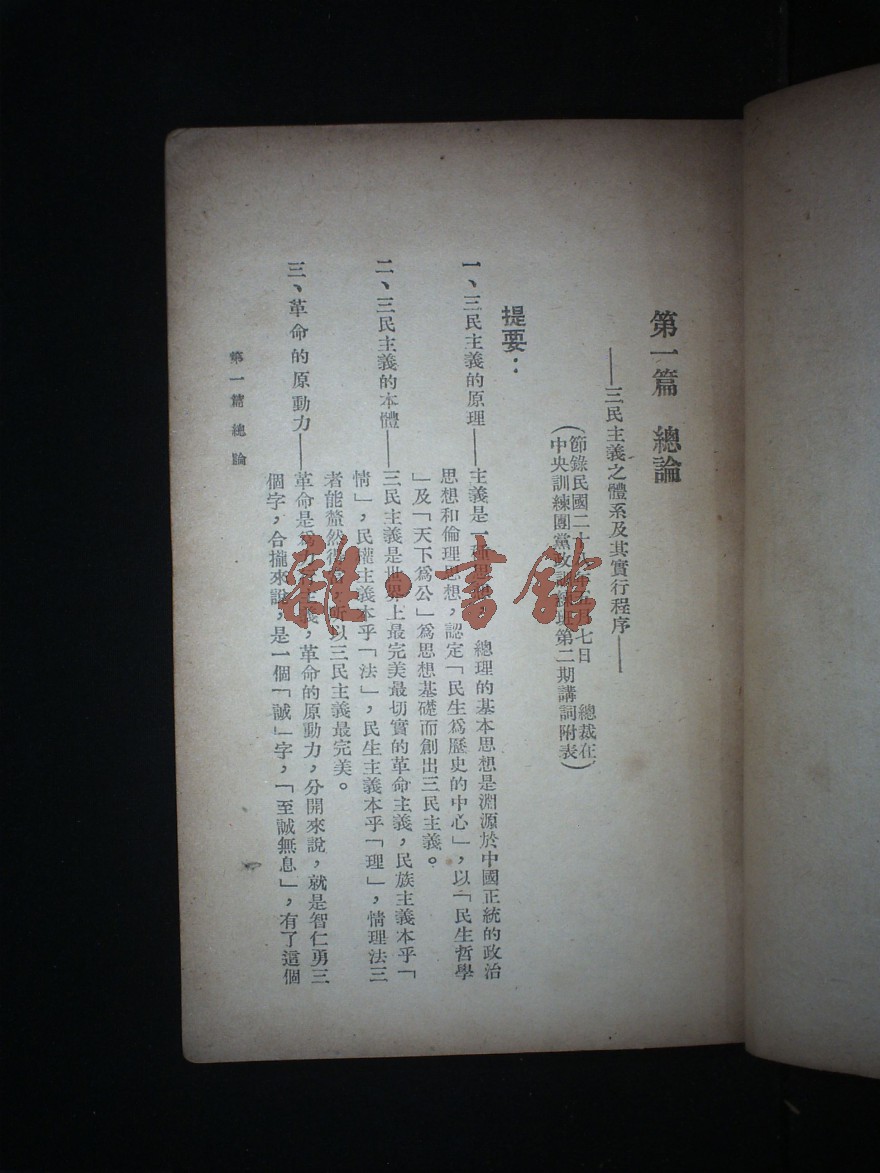 第一篇 總論
——三民主義之體系及其實行程序——
(節錄民國二十 七日 總裁在
中央訓練團黨政訓練班第二期講詞附表)
提要：
一、三民主義的原理——主義是一種思想， 總理的基本思想是淵源於中國正統的政治
思想和倫理思想，認定「民生爲歷史的中心」，以「民生哲學
」及「天下爲公」爲思想基礎而創出三民主義。
二、三民主義的本體——三民主義是世界上最完美最切實的革命主義，民族主義本乎「
情」，民權主義本乎「法」，民生主義本乎「理」，情理法三
者能整然 所以三民主義最完美。
三、革命的原動力——革命是 主義，革命的原動力，分開來說，就是智仁勇三
個字，合攏來說，是一個「誠」字，「至誠無息」，有了這個
第一篇 總論
雜·書館